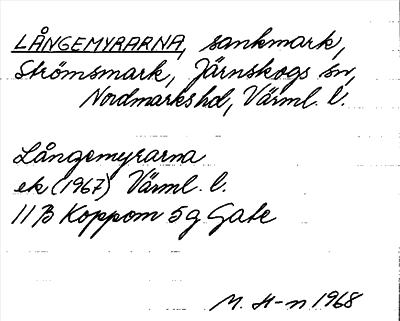 LÅNGEMYRARNA, sankmark,
Strömsmark, Järnskogs sn,
Nordmarks hd, Värml. l.
Långemyrarna
ek (1967) Värml. l.
11B Koppom 5g Gate
M. H-n 1968